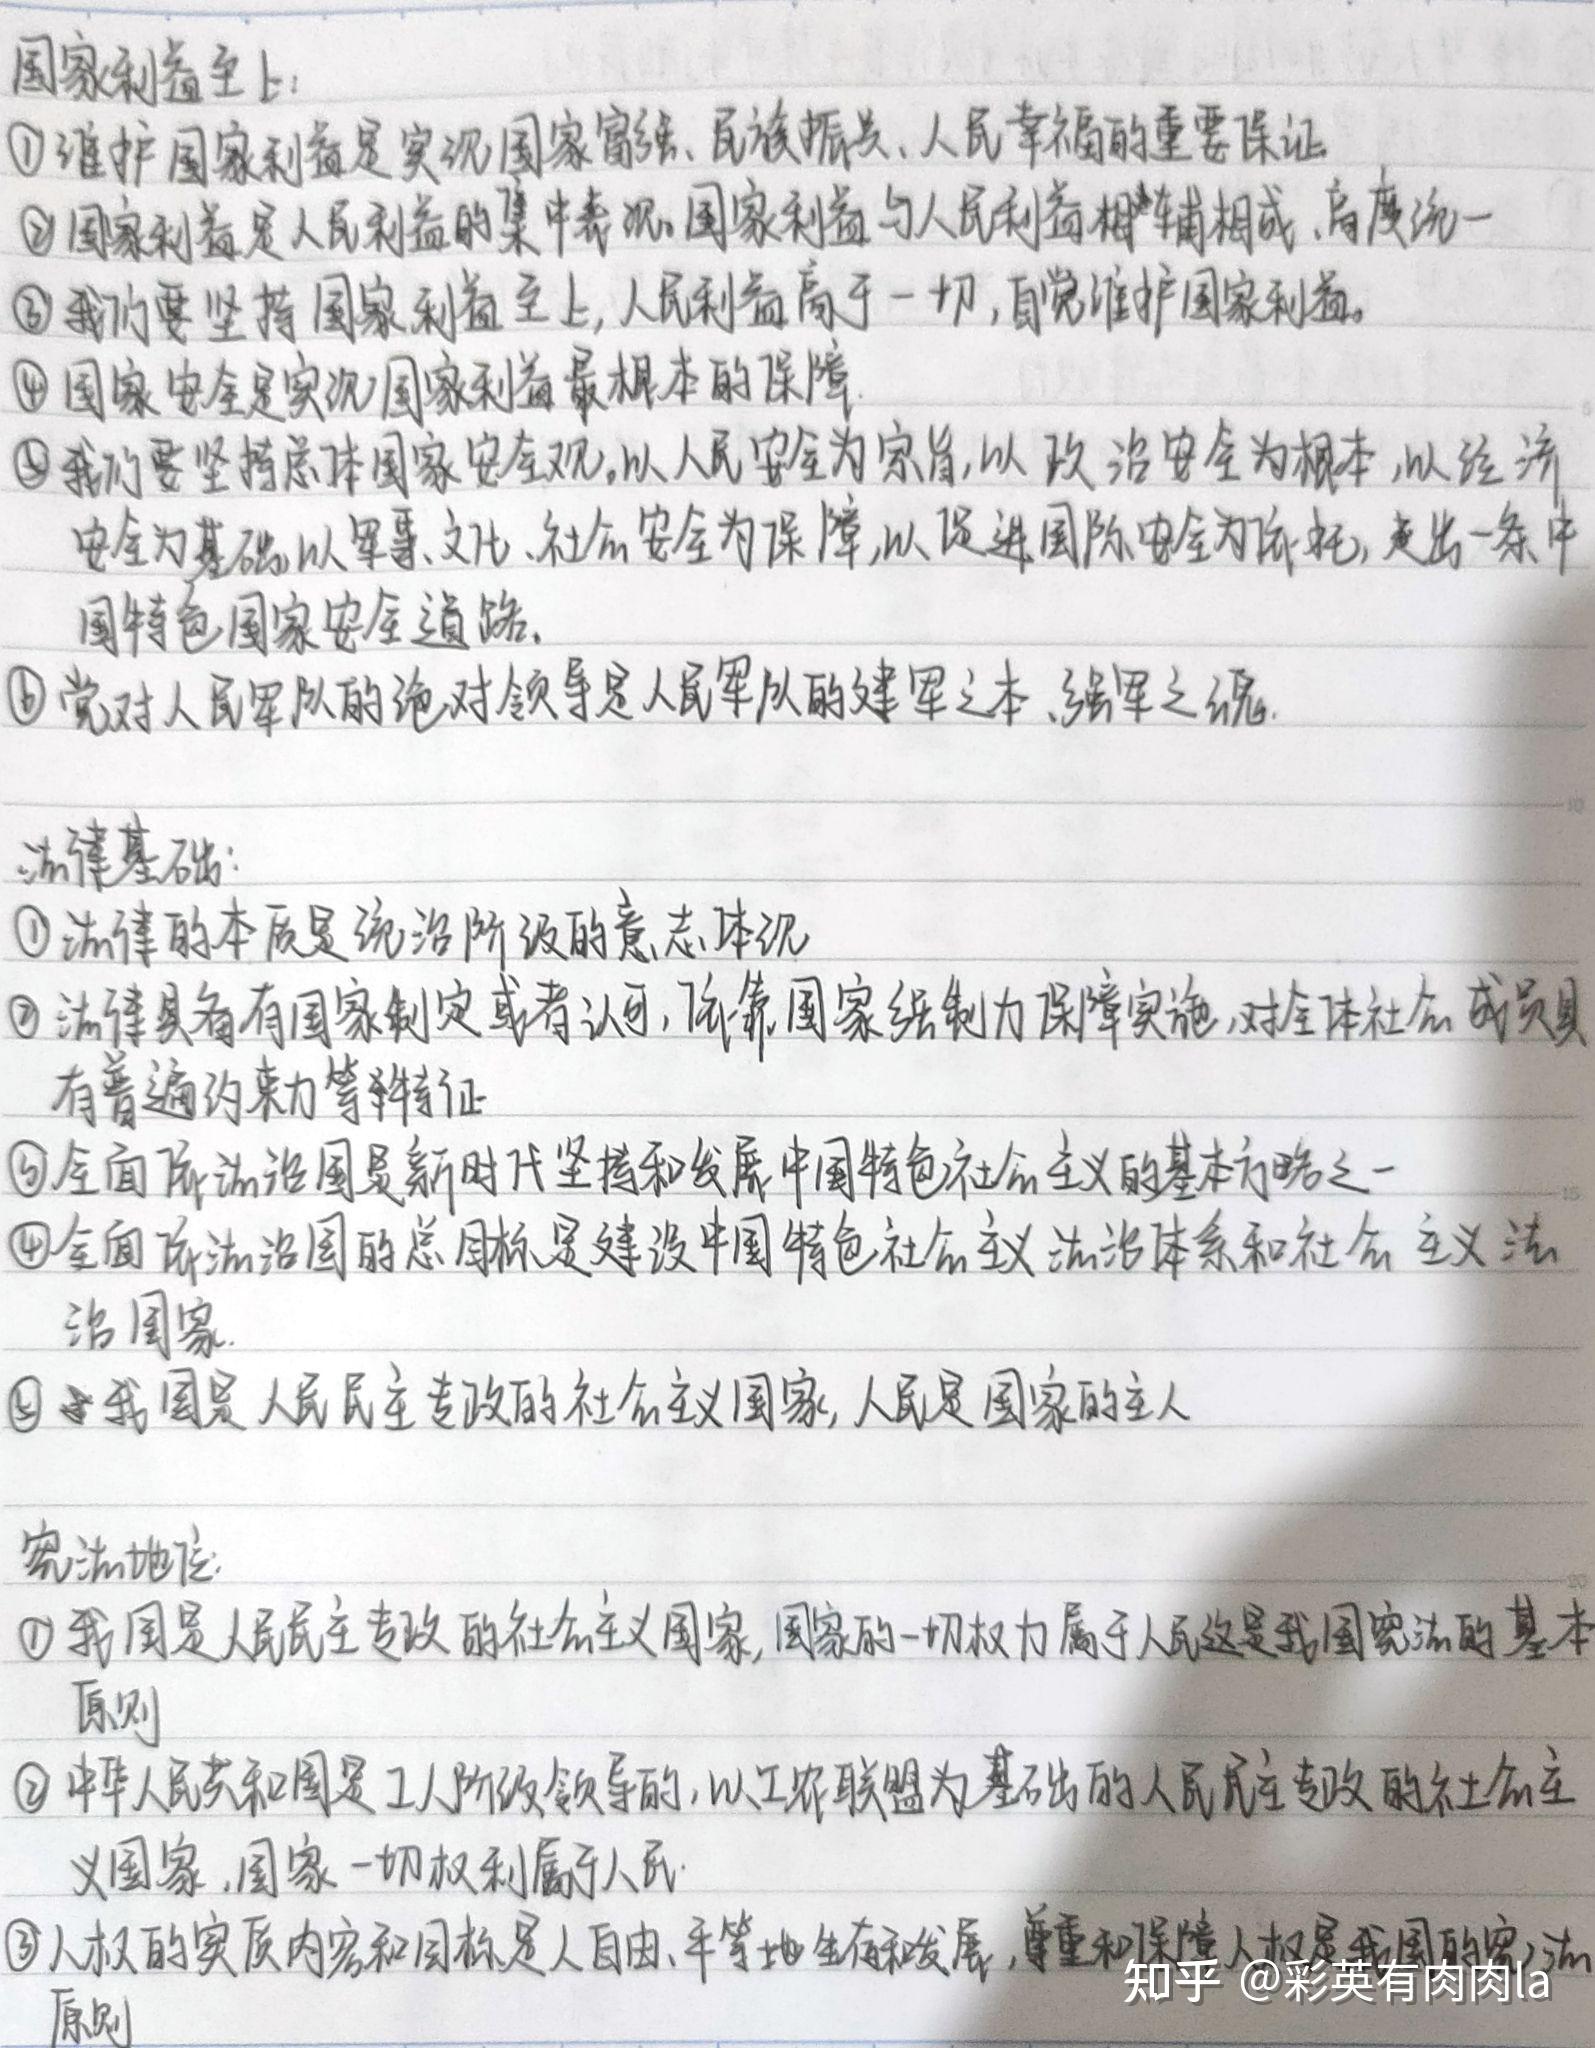 国家利益至上:
①维护国家利益是实现国家富强、民族振兴、人民幸福的重要保证
②国家利益是人民利益的集中表现。国家利益与人民利益相辅相成、高度统一
③我们要坚持国家利益至上,人民利益高于一切,自觉维护国家利益。
④国家安全是实现国家利益最根本的保障.
⑤我们要坚持总体国家安全观。以人民安全为宗旨,以政治安全为根本,以经济
安全为基础,以军事、文化、社会安全为保障,以促进国际安全为依托,走出一条中
国特色国家安全道路。
⑥党对人民军队的绝对领导是人民军队的建军之本、强军之魂.
法律基础:
①法律的本质是统治阶级的意志体现
②法律具备有国家制定或者认可,依靠国家强制力保障实施,对全体社会成员具
有普遍约束力等特征
③全面依法治国是新时代坚持和发展中国特色社会主义的基本方略之一
④全面依法治国的总目标是建设中国特色社会主义法治体系和社会主义法
治国家.
⑤我国是人民民主专政的社会主义国家,人民是国家的主人
宪法地位:
①我国是人民民主专政的社会主义国家,国家的一切权力属于人民这是我国宪法的基本
原则
②中华人民共和国是工人阶级领导的,以工农联盟为基础的人民民主专政的社会主
义国家,国家一切权利属于人民.
③人权的实质内容和目标是人自由、平等地生存和发展,尊重和保障人权是我国的宪法
原则
知乎 @彩英有肉肉la